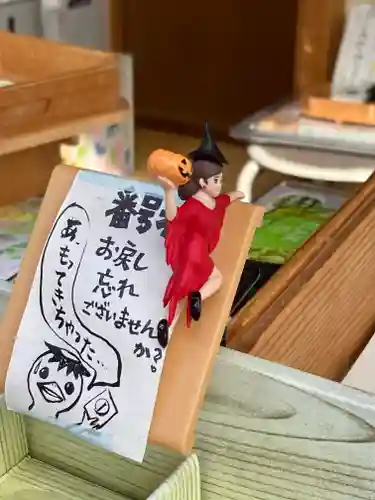 番号札
お戻し
忘れ
ございません
か?
あ、もってきちゃった…